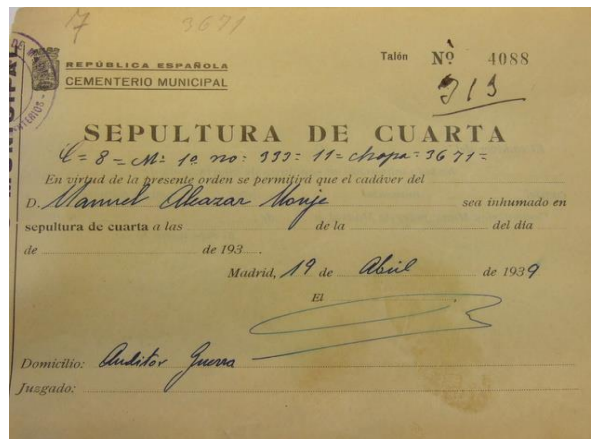 7 3671
REPÚBLICA ESPAÑOLA
CEMENTERIO MUNICIPAL
Talón Nº 4088
313
SEPULTURA DE CUARTA
C= 8 = M: 1º no: 333= 11= chapa= 3671=
En virtud de la presente orden se permitirá que el cadáver del
D. Manuel Alcazar Monje sea inhumado en
sepultura de cuarta a las de la del día
de de 193
Madrid, 19 de Abril de 1939
El
Domicilio: Auditor Guerra
Juzgado: